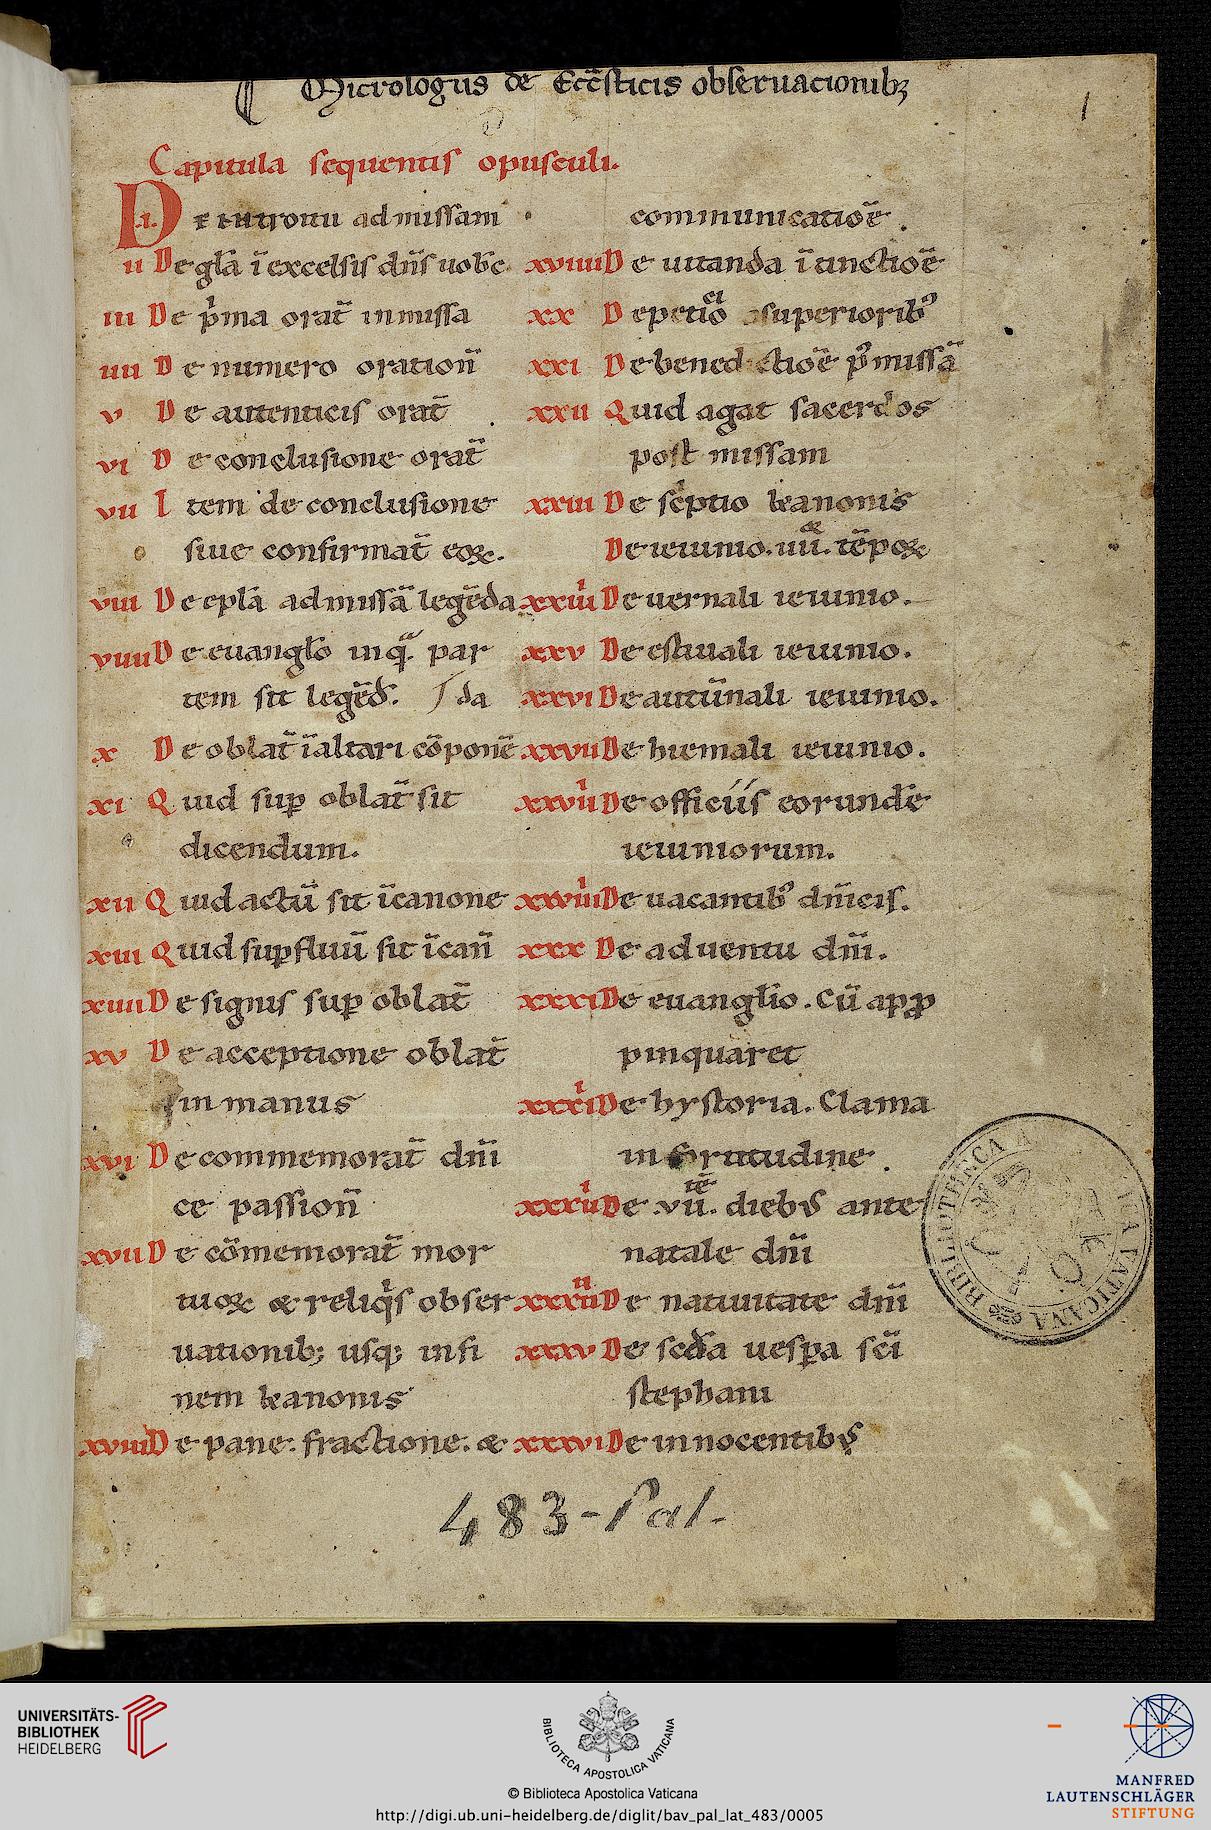 Micrologus de Ecc̄sticis obseruacionibꝫ
1
Capitula sequentis opusculi.
.i. De introitu ad missam
ii De gl̄a ī excelsis dn̄s uobc̄
iii De p̄ma orat̄ in missa
iiii De numero oration̄
v De autenticis orat̄
vi De conclusione orat̄
vii Item de conclusione
siue confirmat̄ eoꝝ.
viii De epl̄a ad missā legēda
viiii De euangl̄o in q̄ par
tem sit legēd̄. da
x De oblat̄ ī altari cōponē
xi Quid suꝑ oblat̄ sit
dicendum.
xii Quid actū sit ī canone
xiii Quid suꝑfluū sit ī can̄
xiiii De signis suꝑ oblat̄
xv De acceptione oblat̄
in manus
xvi De commemorat̄ dn̄i
ce passion̄
xvii De cōmemorat̄ mor
tuoꝝ & reliq̄s obser
uationibꝫ usqꝫ in fi
nem kanonis
xviii De pane. fractione. &
communicatiōe.
xviiii De uitanda ī tinctiōe
xx De petitiōe superioribꝰ
xxi De benedictiōe p̄ missā
xxii Quid agat sacerdos
post missam
xxiii De sc̄ptio kanonis
De ieiunio .iiii. tēpoꝝ
xxiiii De uernali ieiunio.
xxv De estiuali ieiunio.
xxvi De autūnali ieiunio.
xxvii De hiemali ieiunio.
xxviii De officiis eorundē
ieiuniorum.
xxviiii De uacantibꝰ dn̄icis.
xxx De aduentu dn̄i.
xxxi De euangl̄io. Cū apꝓ
pinquaret
xxxii De hystoria. Clama
in fortitudine.
xxxiii De .vii. diebꝰ ante
natale dn̄i
xxxiiii De natiuitate dn̄i
xxxv De scd̄a uesp̄a sc̄i
stephani
xxxvi De innocentibꝰ
483-Pal.
BIBLIOTHECA APOSTOLICA VATICANA
UNIVERSITÄTS-
BIBLIOTHEK
HEIDELBERG
BIBLIOTECA APOSTOLICA VATICANA
© Biblioteca Apostolica Vaticana
http://digi.ub.uni-heidelberg.de/diglit/bav_pal_lat_483/0005
MANFRED
LAUTENSCHLÄGER
STIFTUNG